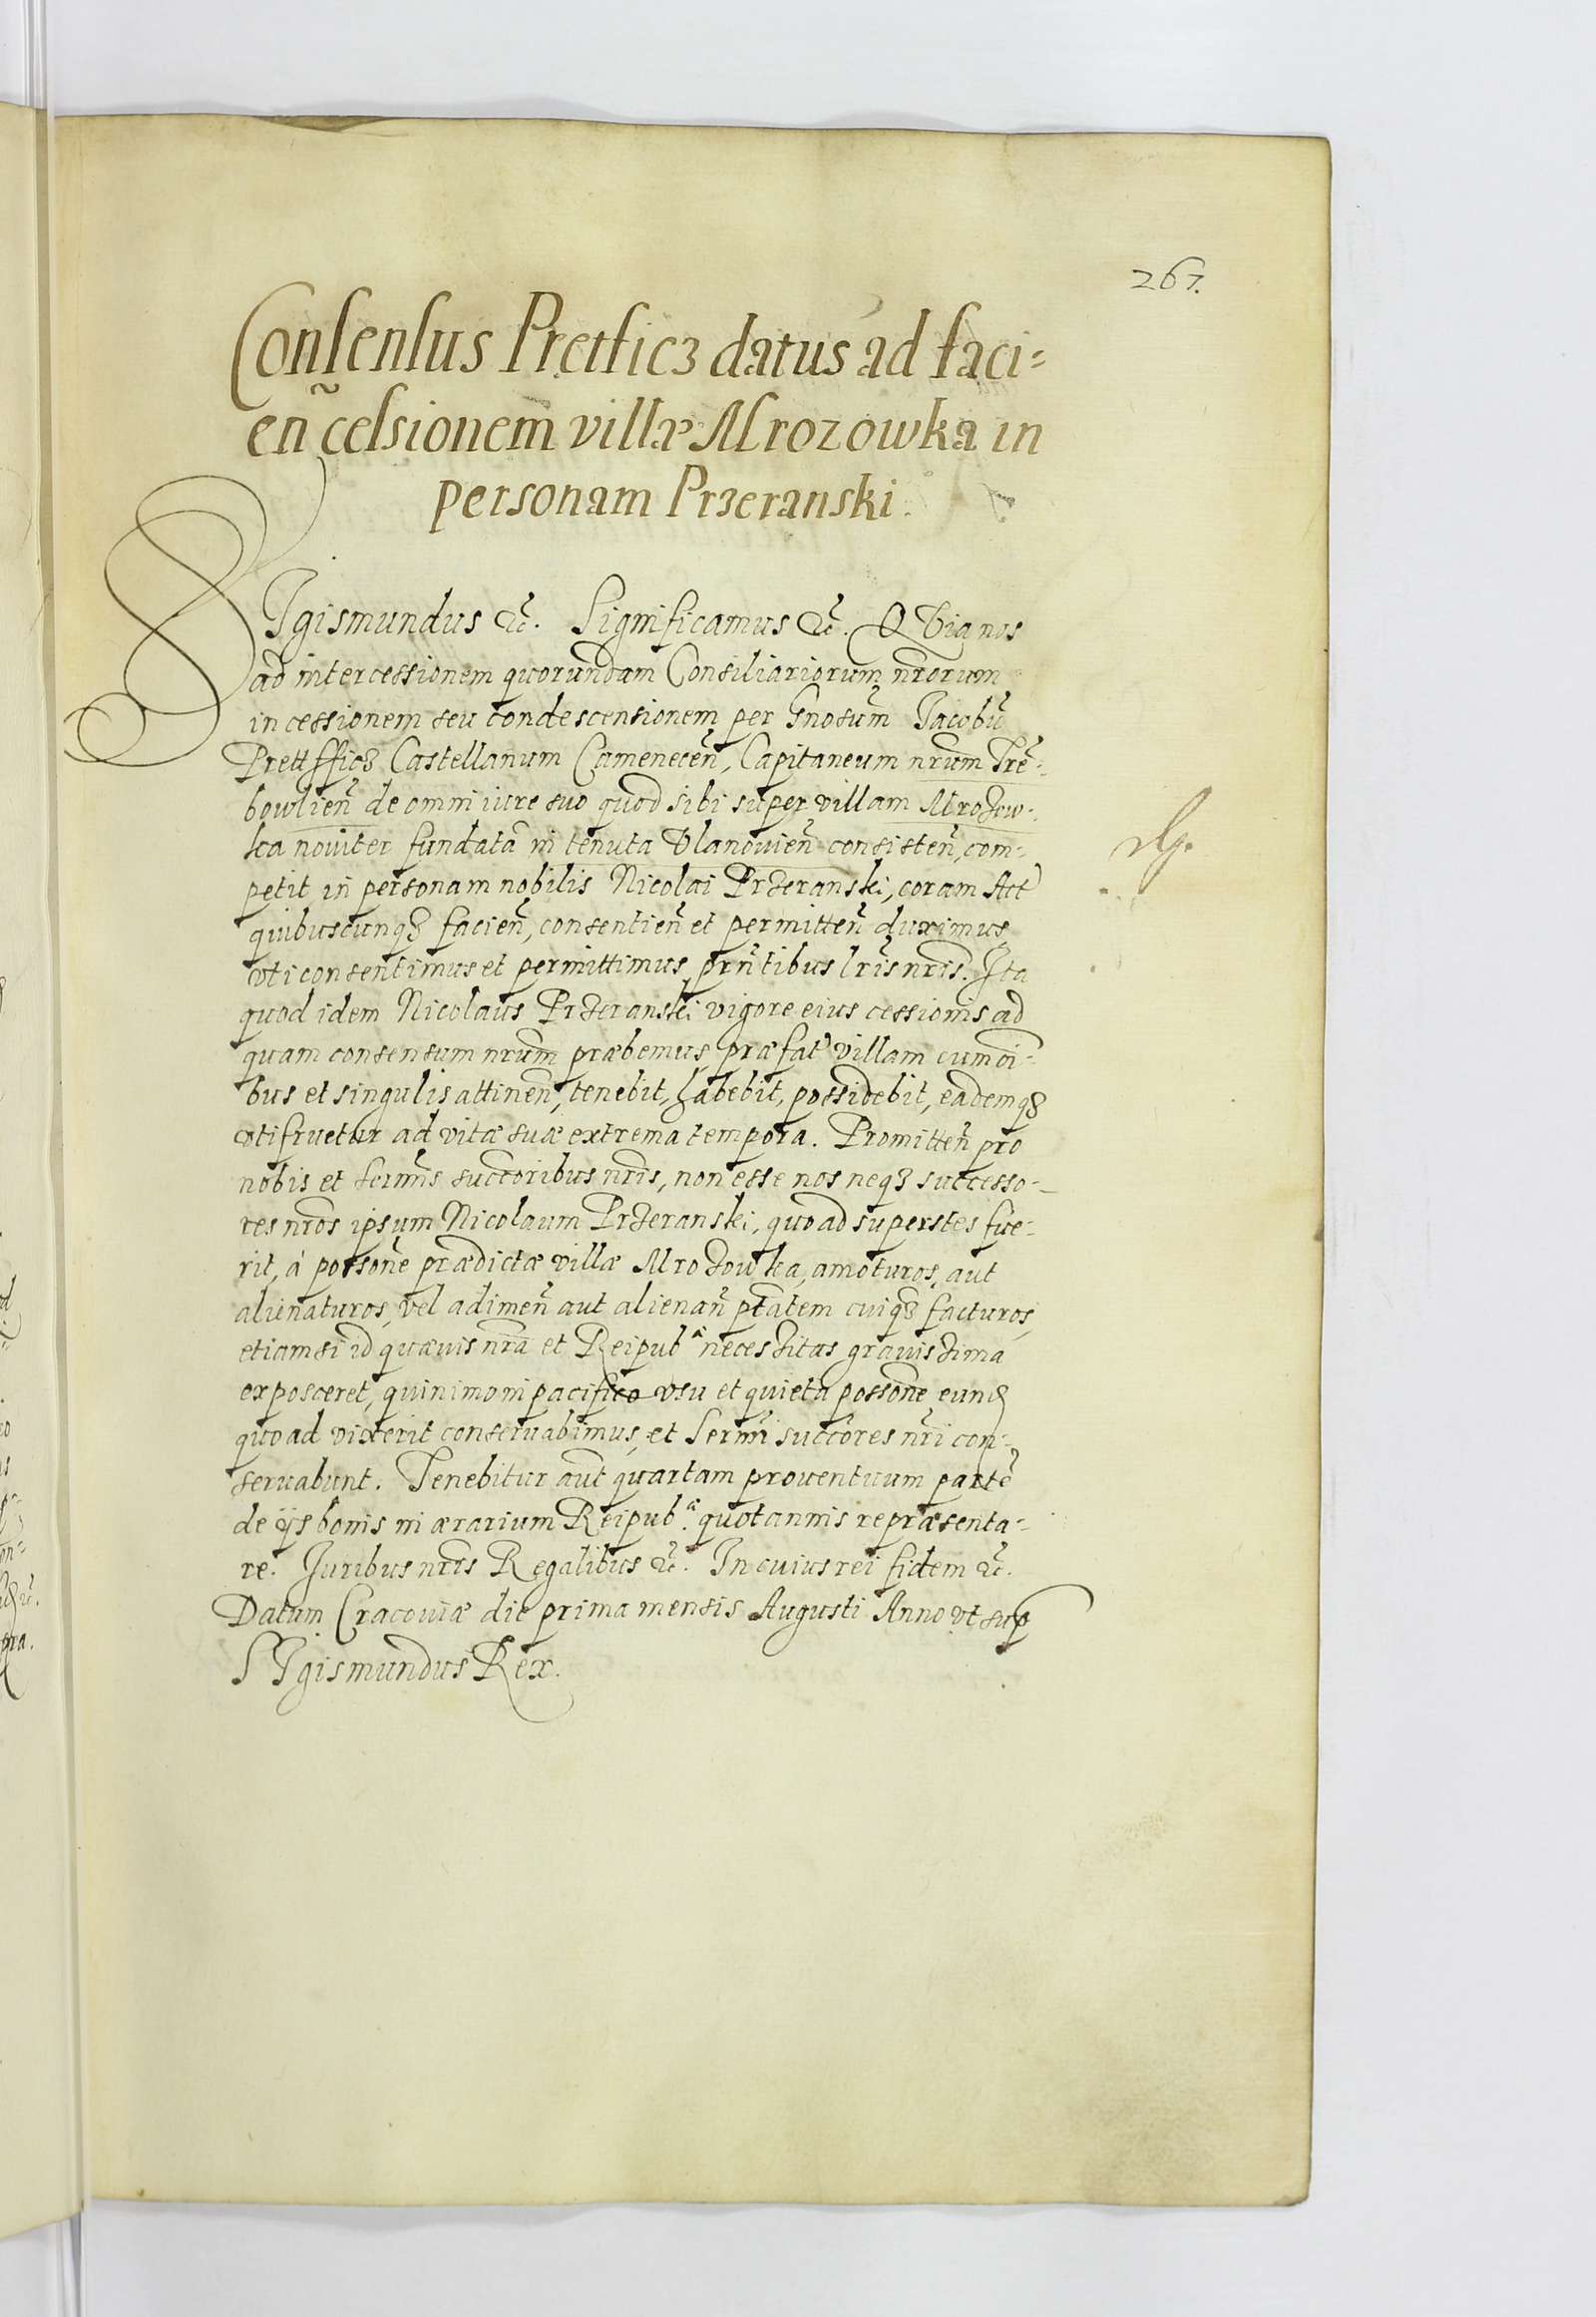 267.
Consensus Pretficz datus ad faci=
eñ cessionem villæ Mrozowka in
personam Przeranski.
Sigismundus &c̃. Significamus &c̃. Quia nos
ad intercessionem quorundam Consiliariorum nr̃orum
in cessionem seu condescensionem per Gñosum Jacobũ
Prettfficz Castellanum Cameneceñ, Capitaneum nr̃um Tre=
bowlieñ de omni iure suo quod sibi super villam Mrozow=
ka noviter fundatã in tenuta Vlanovieñ consisteñ, com=
petit in personam nobilis Nicolai Przeranski, coram Act
quibuscunq3 facieñ, consentieñ et permitteñ duximus,
vti consentimus et permittimus pr̃ntibus lr̃is nr̃is. Ita
quod idem Nicolaus Przeranski vigore eius cessionis ad
quam consensum nr̃um præbemus, præfat villam cum oĩ=
bus et singulis attineñ, tenebit, habebit, possidebit, eademq3
vtifruetur ad vitæ suæ extrema tempora. Promitteñ pro
nobis et Serm̃is succ̃oribus nr̃is, non esse nos neq3 successo=
res nr̃os ipsum Nicolaum Przeranski, quoad superstes fue=
rit, à possoñe prædictæ villæ Mrozowka, amoturos, aut
alienaturos, vel adimeñ aut alienañ ptãtem cuiq3 facturos,
etiamsi id quævis nr̃a et Reipubᵃ necessitas gravissima
exposceret, quinimo in pacifico vsu et quieta possoñe eund
quoad vixerit conservabimus, et Serm̃i succ̃ores nr̃i con=
servabunt. Tenebitur aut̃ quartam proventuum partẽ
de ijs bonis in ærarium Reipub.ᵃ quotannis repræsenta=
re. Juribus nr̃is Regalibus &c̃. In cuius rei fidem &c̃.
Datum Cracoviæ die prima mensis Augusti Anno vt sup
Sigismundus Rex.